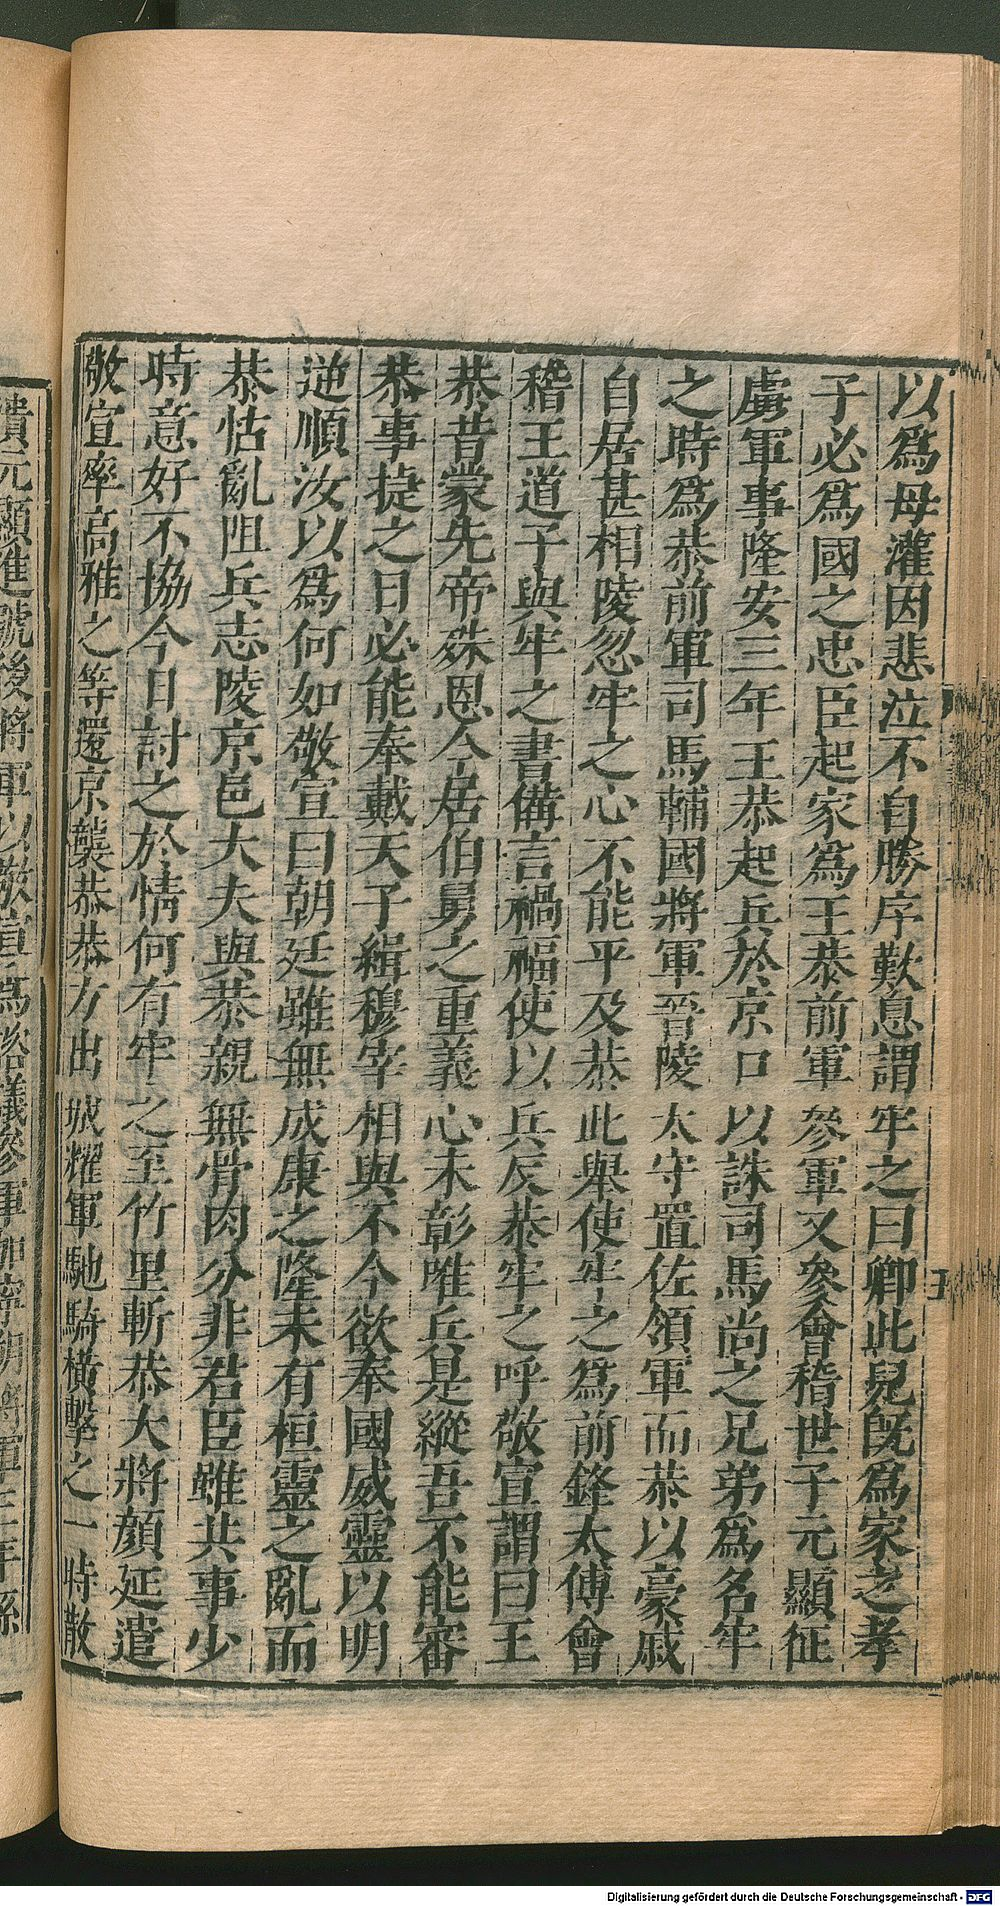 以爲母灌因悲泣不自勝序歎息謂牢之曰卿此兒旣爲家之孝
子必爲國之忠臣起家爲王恭前軍參軍又參會稽世子元顯征
虜軍事隆安三年王恭起兵於京口以誅司馬尚之兄弟爲名牢
之時爲恭前軍司馬輔國將軍晉陵太守置佐領軍而恭以豪戚
自居甚相陵忽牢之心不能平及恭此舉使牢之爲前鋒太傅會
稽王道子與牢之書備言禍福使以兵反恭牢之呼敬宣謂曰王
恭昔蒙先帝殊恩今居伯舅之重義心未彰唯兵是縱吾不能審
恭事捷之日必能奉戴天子緝穆宰相與不今欲奉國威靈以明
逆順汝以爲何如敬宣曰朝廷雖無成康之隆未有桓靈之亂而
恭怙亂阻兵志陵京邑大夫與恭親無骨肉分非君臣雖共事少
時意好不協今日討之於情何有牢之至竹里斬恭大將顏延遣
敬宣率高雅之等還京襲恭恭方出城耀軍馳騎橫擊之一時散
五
潰元顯進號後將軍以敬宣爲諮議參軍加寧朔將軍三年孫
Digitalisierung gefördert durch die Deutsche Forschungsgemeinschaft - DFG